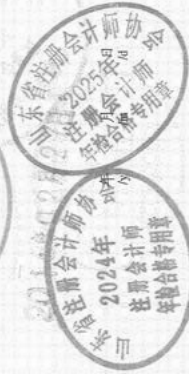 山东省注册会计师协会
2025年
注册会计师
年检合格专用章
月 日
/m /d
年
/y
山东省注册会计师协会
2024年
注册会计师
年检合格专用章